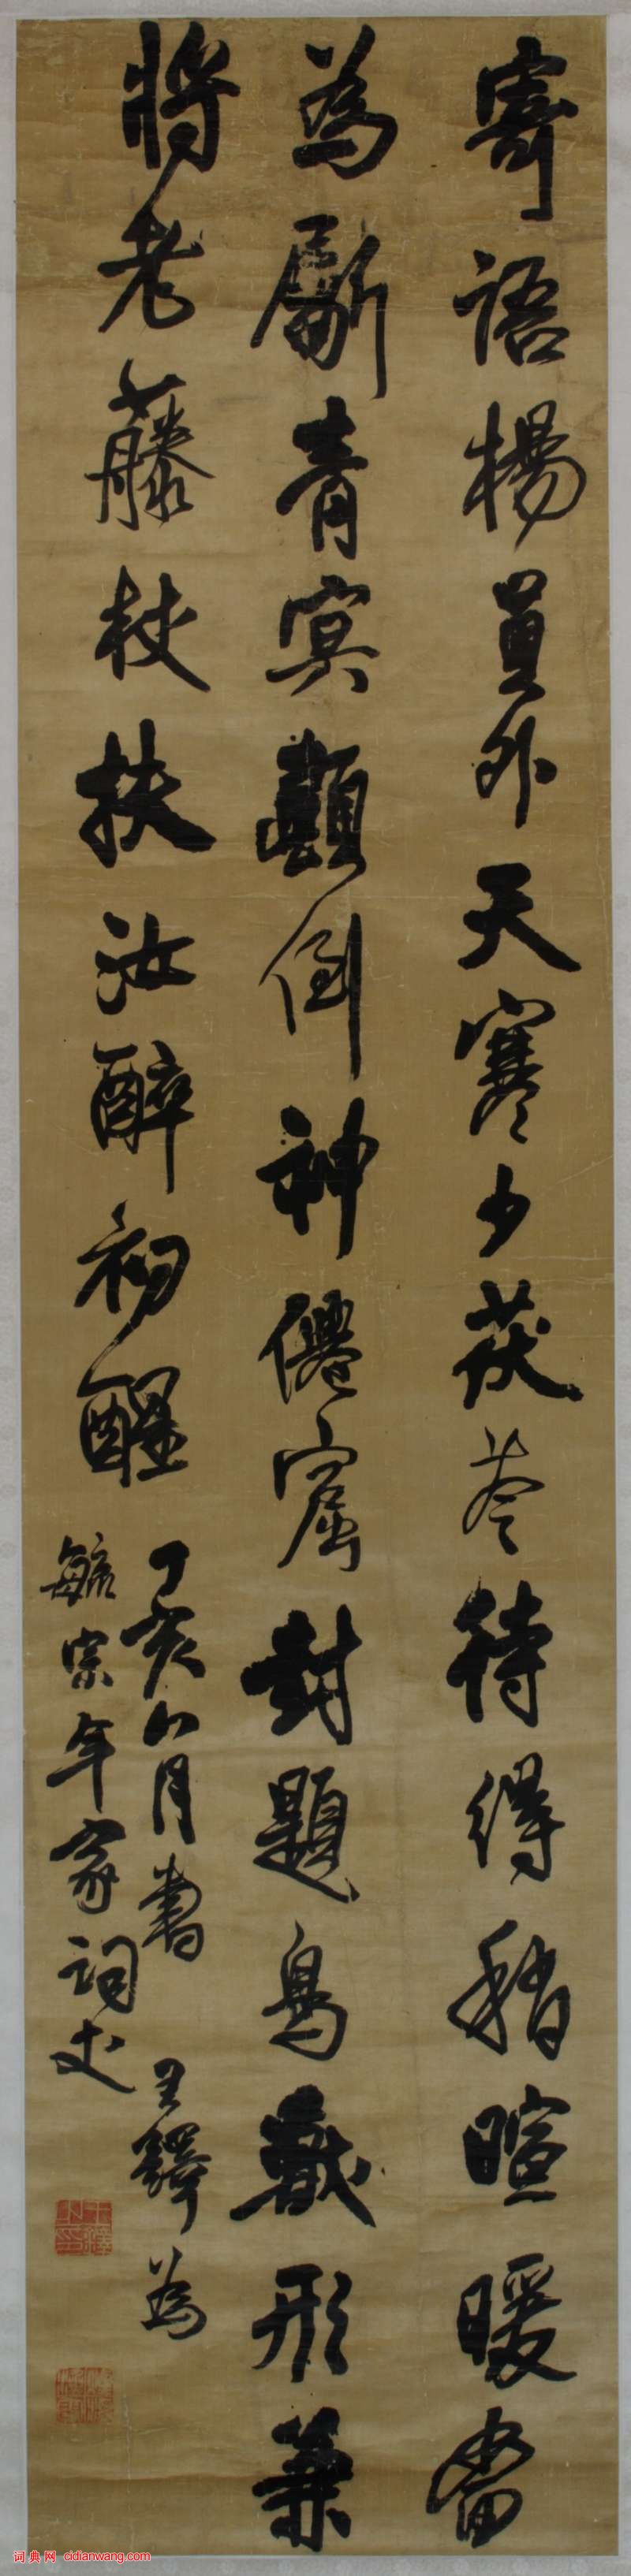 寄語楊員外天寒少茯苓待得稍暄暖當
為劚青冥顛倒神僊窟封題鳥獸形兼
將老藤杖扶汝醉初醒
丁亥八月書 王鐸為
毓宗年家詞丈
词典网 cidianwang.com